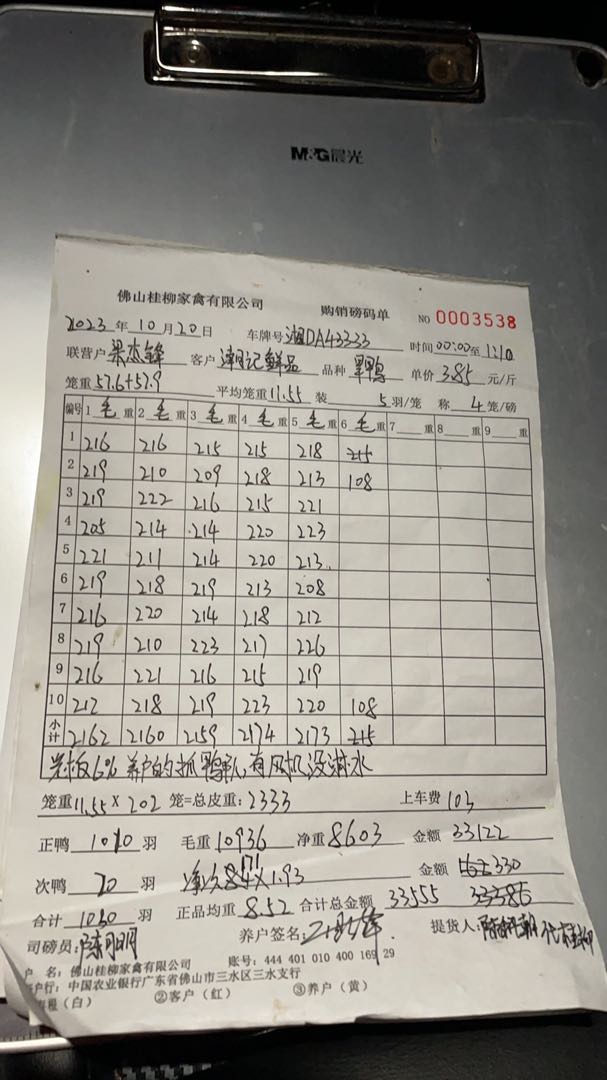 M&G晨光
佛山桂柳家禽有限公司 购销磅码单 NO 0003538
2023年10月20日 车牌号 湘DA43333 时间00:00至1:10
联营户 客户 潮记鲜品 品种 单价 3.85 元/斤
笼重57.6+57.9 平均笼重11.55 装 5羽/笼 称 4笼/磅
编号 1毛重 2毛重 3毛重 4毛重 5毛重 6毛重 7 重 8 重 9 重
1 216 216 215 215 218 215
2 219 210 209 218 213 108
3 219 222 216 215 221
4 205 214 214 220 223
5 221 211 214 220 213
6 219 218 219 213 208
7 216 220 214 218 212
8 219 210 223 217 226
9 216 221 216 215 219
10 212 218 219 223 220 108
小计 2162 2160 2159 2174 2173 215
6% 养户的抓鸭车队,有风机没淋水
笼重11.55×202 笼=总皮重:2333 上车费 103
正鸭 1010 羽 毛重10936 净重8603 金额 33122
次鸭 20 羽 171×1.93 金额 330
合计 1030 羽 正品均重 8.52 合计总金额 33555 33386
司磅员: 养户签名: 提货人:
户 名:佛山桂柳家禽有限公司 账号:444 401 010 400 169 29
户行:中国农业银行广东省佛山市三水区三水支行
根(白) ②客户(红) ③养户(黄)